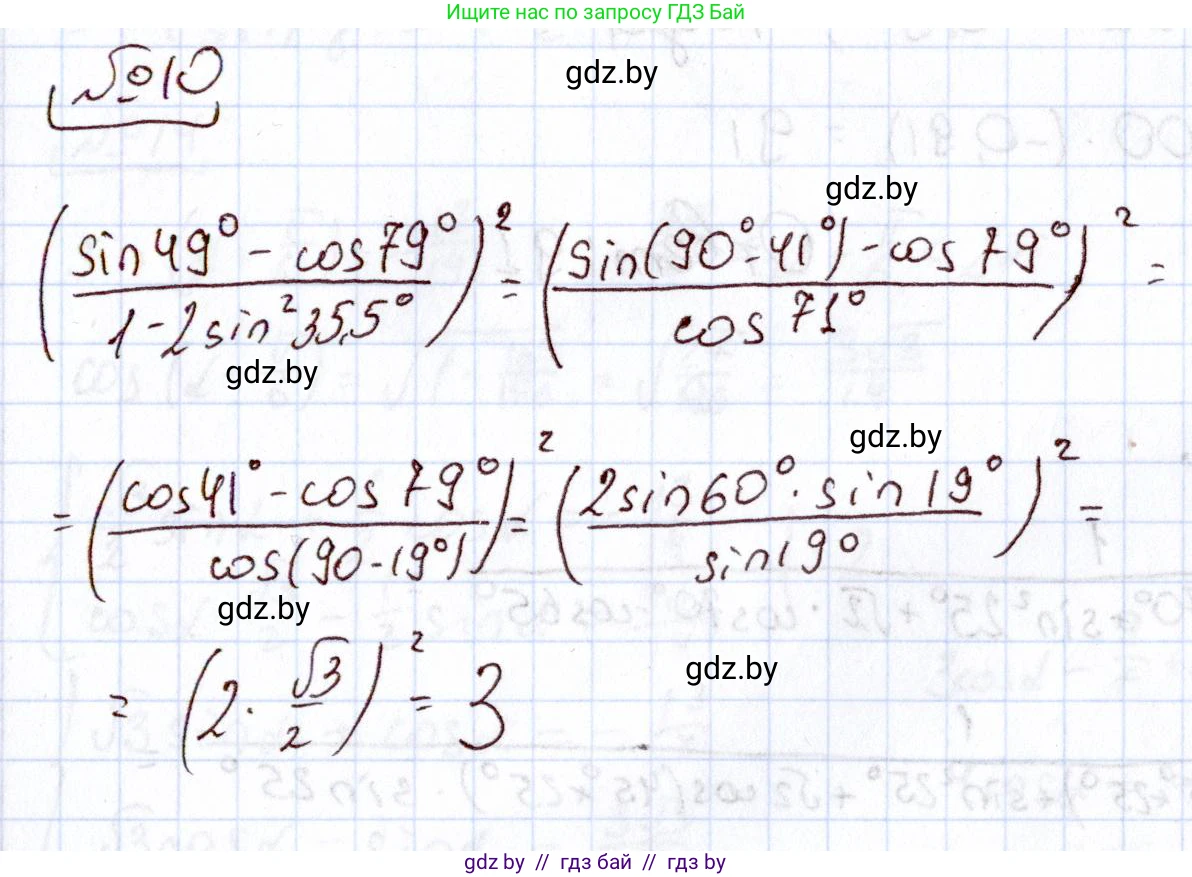 Ищите нас по запросу ГДЗ Бай
№10
gdz.by
gdz.by
(sin49° - cos79° / 1-2sin²35,5°)² = (sin(90°-41°) - cos79° / cos71°)² =
gdz.by
gdz.by
= (cos41° - cos79° / cos(90-19°))² = (2sin60° · sin19° / sin19°)² =
gdz.by
= (2 · √3/2)² = 3
gdz.by
gdz.by // гдз бай // гдз by